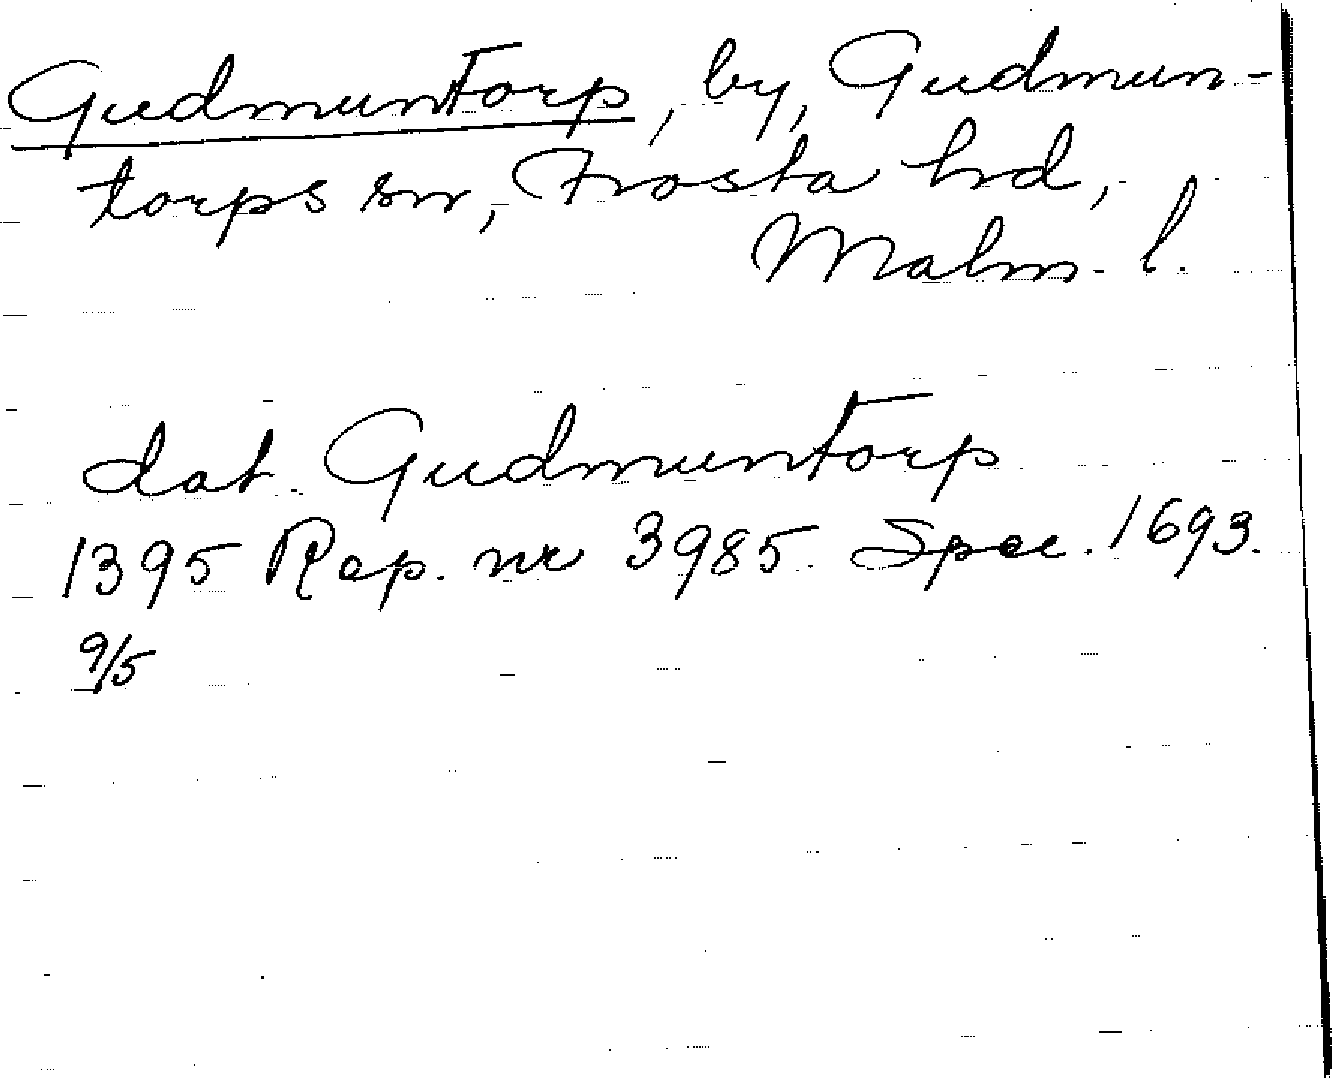 Gudmuntorp, by, Gudmun-
torps sn, Frosta hd,
Malm. l.
dat. Gudmuntorp
1395 Rep. nr 3985 Spec. 1693.
9/5